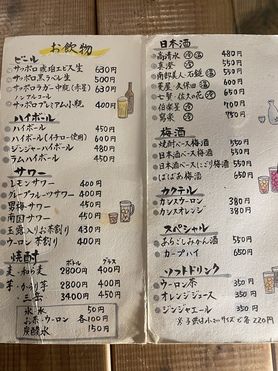 お飲物
ビール
サッポロ 琥珀ヱビス生 630円
サッポロ黒ラベル生 500円
サッポロラガー中瓶(赤星) 630円
ノンアルコール
サッポロプレミアム小瓶 400円
ハイボール
ハイボール 450円
ハイボール(イチロー使用) 600円
ジンジャーハイボール 480円
ラムハイボール 550円
サワー
レモンサワー 400円
グレープフルーツサワー 400円
男梅サワー 450円
南国サワー 450円
玉露入りお茶割り 430円
ウーロン茶割り 400円
焼酎
ボトル グラス
麦・和ら麦 2800円 400円
芋・か 2800円 400円
・三岳 3400円 450円
氷 50円
お茶・ウーロン 各100円
炭酸水 150円
日本酒
高清水 480円
真澄 550円
南部美人・石鎚
菱屋・久保田 600円
七賢・佐太の花 650円
伯楽星 700円
寫楽 750円
梅酒
焼酎ベース梅酒 550円
日本酒ベース梅酒 550円
日本酒ベースにごり梅酒 550円
ばばあ梅酒 600円
カクテル
カシスウーロン 380円
カシスオレンジ 380円
スペシャル
あらごしみかん酒 550円
カープハイ 650円
ソフトドリンク
ウーロン茶 350円
オレンジジュース 350円
ジンジャエール 350円
※子供はハーフサイズで各220円